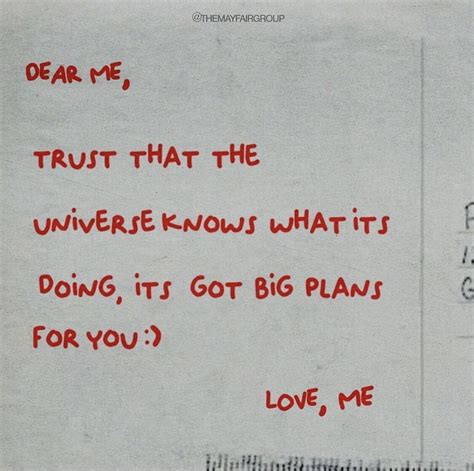 @THEMAYFAIRGROUP
DEAR ME,
TRUST THAT THE
UNIVERSE KNOWS WHAT ITS
DOING, ITS GOT BIG PLANS
FOR YOU:)
LOVE, ME